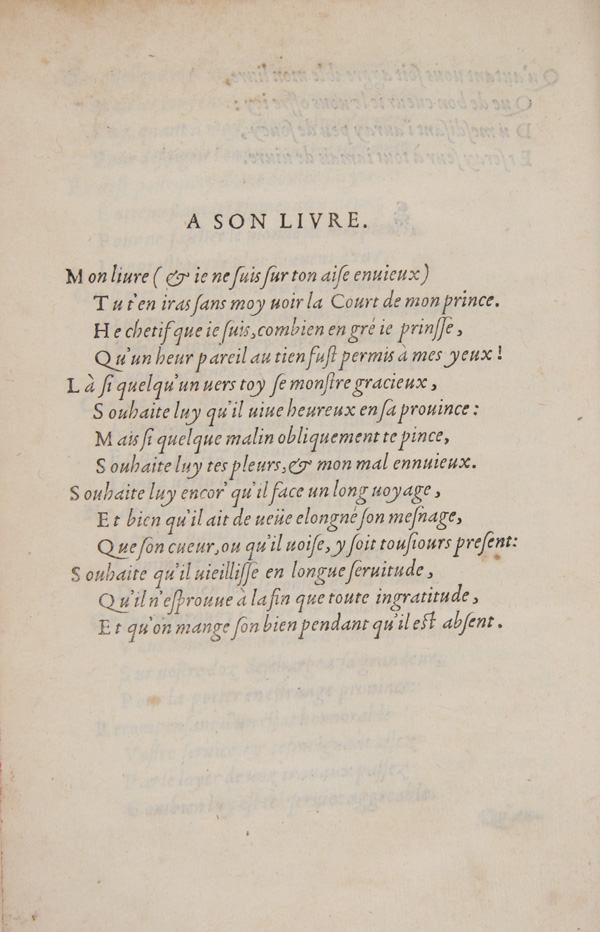 A SON LIVRE.
Mon liure (& ie ne ſuis ſur ton aiſe enuieux)
Tu t'en iras ſans moy uoir la Court de mon prince.
He chetif que ie ſuis, combien en gré ie prinſſe,
Qu'un heur pareil au tien fuſt permis à mes yeux!
Là ſi quelqu'un uers toy ſe monſtre gracieux,
Souhaite luy qu'il uiue heureux en ſa prouince:
Mais ſi quelque malin obliquement te pince,
Souhaite luy tes pleurs, & mon mal ennuieux.
Souhaite luy encor' qu'il face un long uoyage,
Et bien qu'il ait de ueüe elongné ſon meſnage,
Que ſon cueur, ou qu'il uoiſe, y ſoit touſiours preſent:
Souhaite qu'il uieilliſſe en longue ſeruitude,
Qu'il n'eſprouue à la fin que toute ingratitude,
Et qu'on mange ſon bien pendant qu'il eſt abſent.